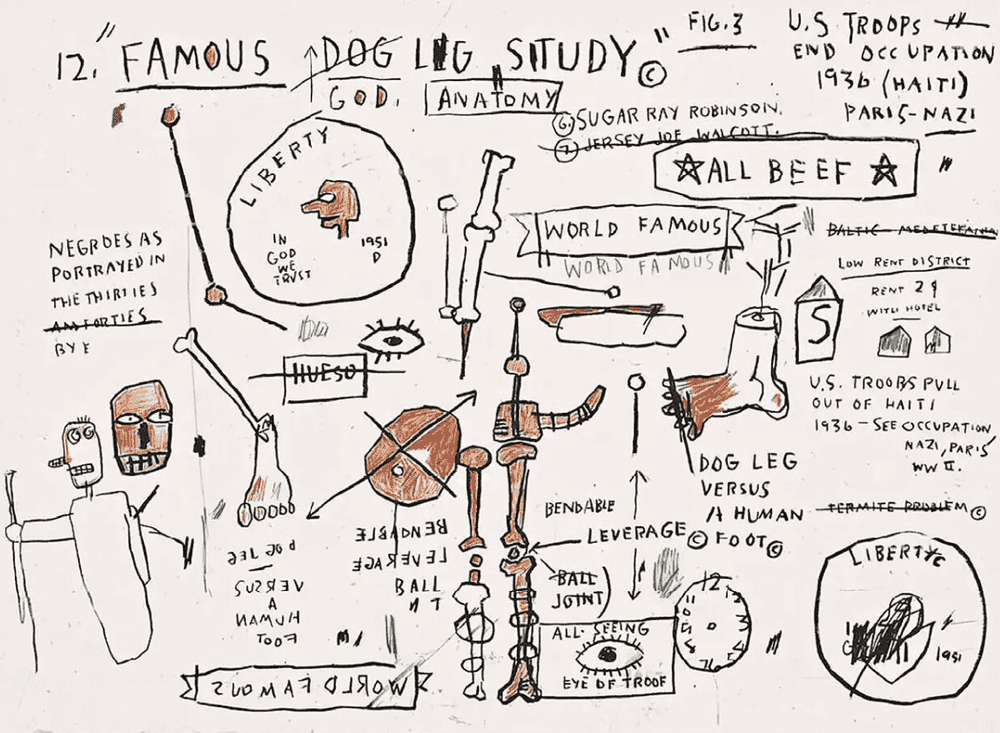 12. "FAMOUS DOG LEG STUDY" ©
GOD.
ANATOMY
FIG.3
U.S. TROOPS
END OCCUPATION
1936 (HAITI)
PARIS-NAZI
⑥ SUGAR RAY ROBINSON.
⑦ JERSEY JOE WALCOTT.
☆ALL BEEF☆
LIBERTY
IN
GOD
WE
TRUST
1951
D
WORLD FAMOUS
WORLD FAMOUS
NEGROES AS
PORTRAYED IN
THE THIRTIES
BYE
HUESO
BALTIC-
LOW RENT DISTRICT
RENT 2¢
WITH HOTEL
S
U.S. TROOPS PULL
OUT OF HAITI
1936-SEE OCCUPATION
NAZI, PARIS
WW II.
TERMITE PROBLEM ©
DOG LEG
VERSUS
A HUMAN
FOOT ©
BENDABLE
LEVERAGE ©
BALL
JOINT
BENDABLE
LEVERAGE
BALL
DOG LEG
VERSUS
A
HUMAN
FOOT
ALL SEEING
EYE OF TROOF
12
LIBERTY
1951
WORLD FAMOUS